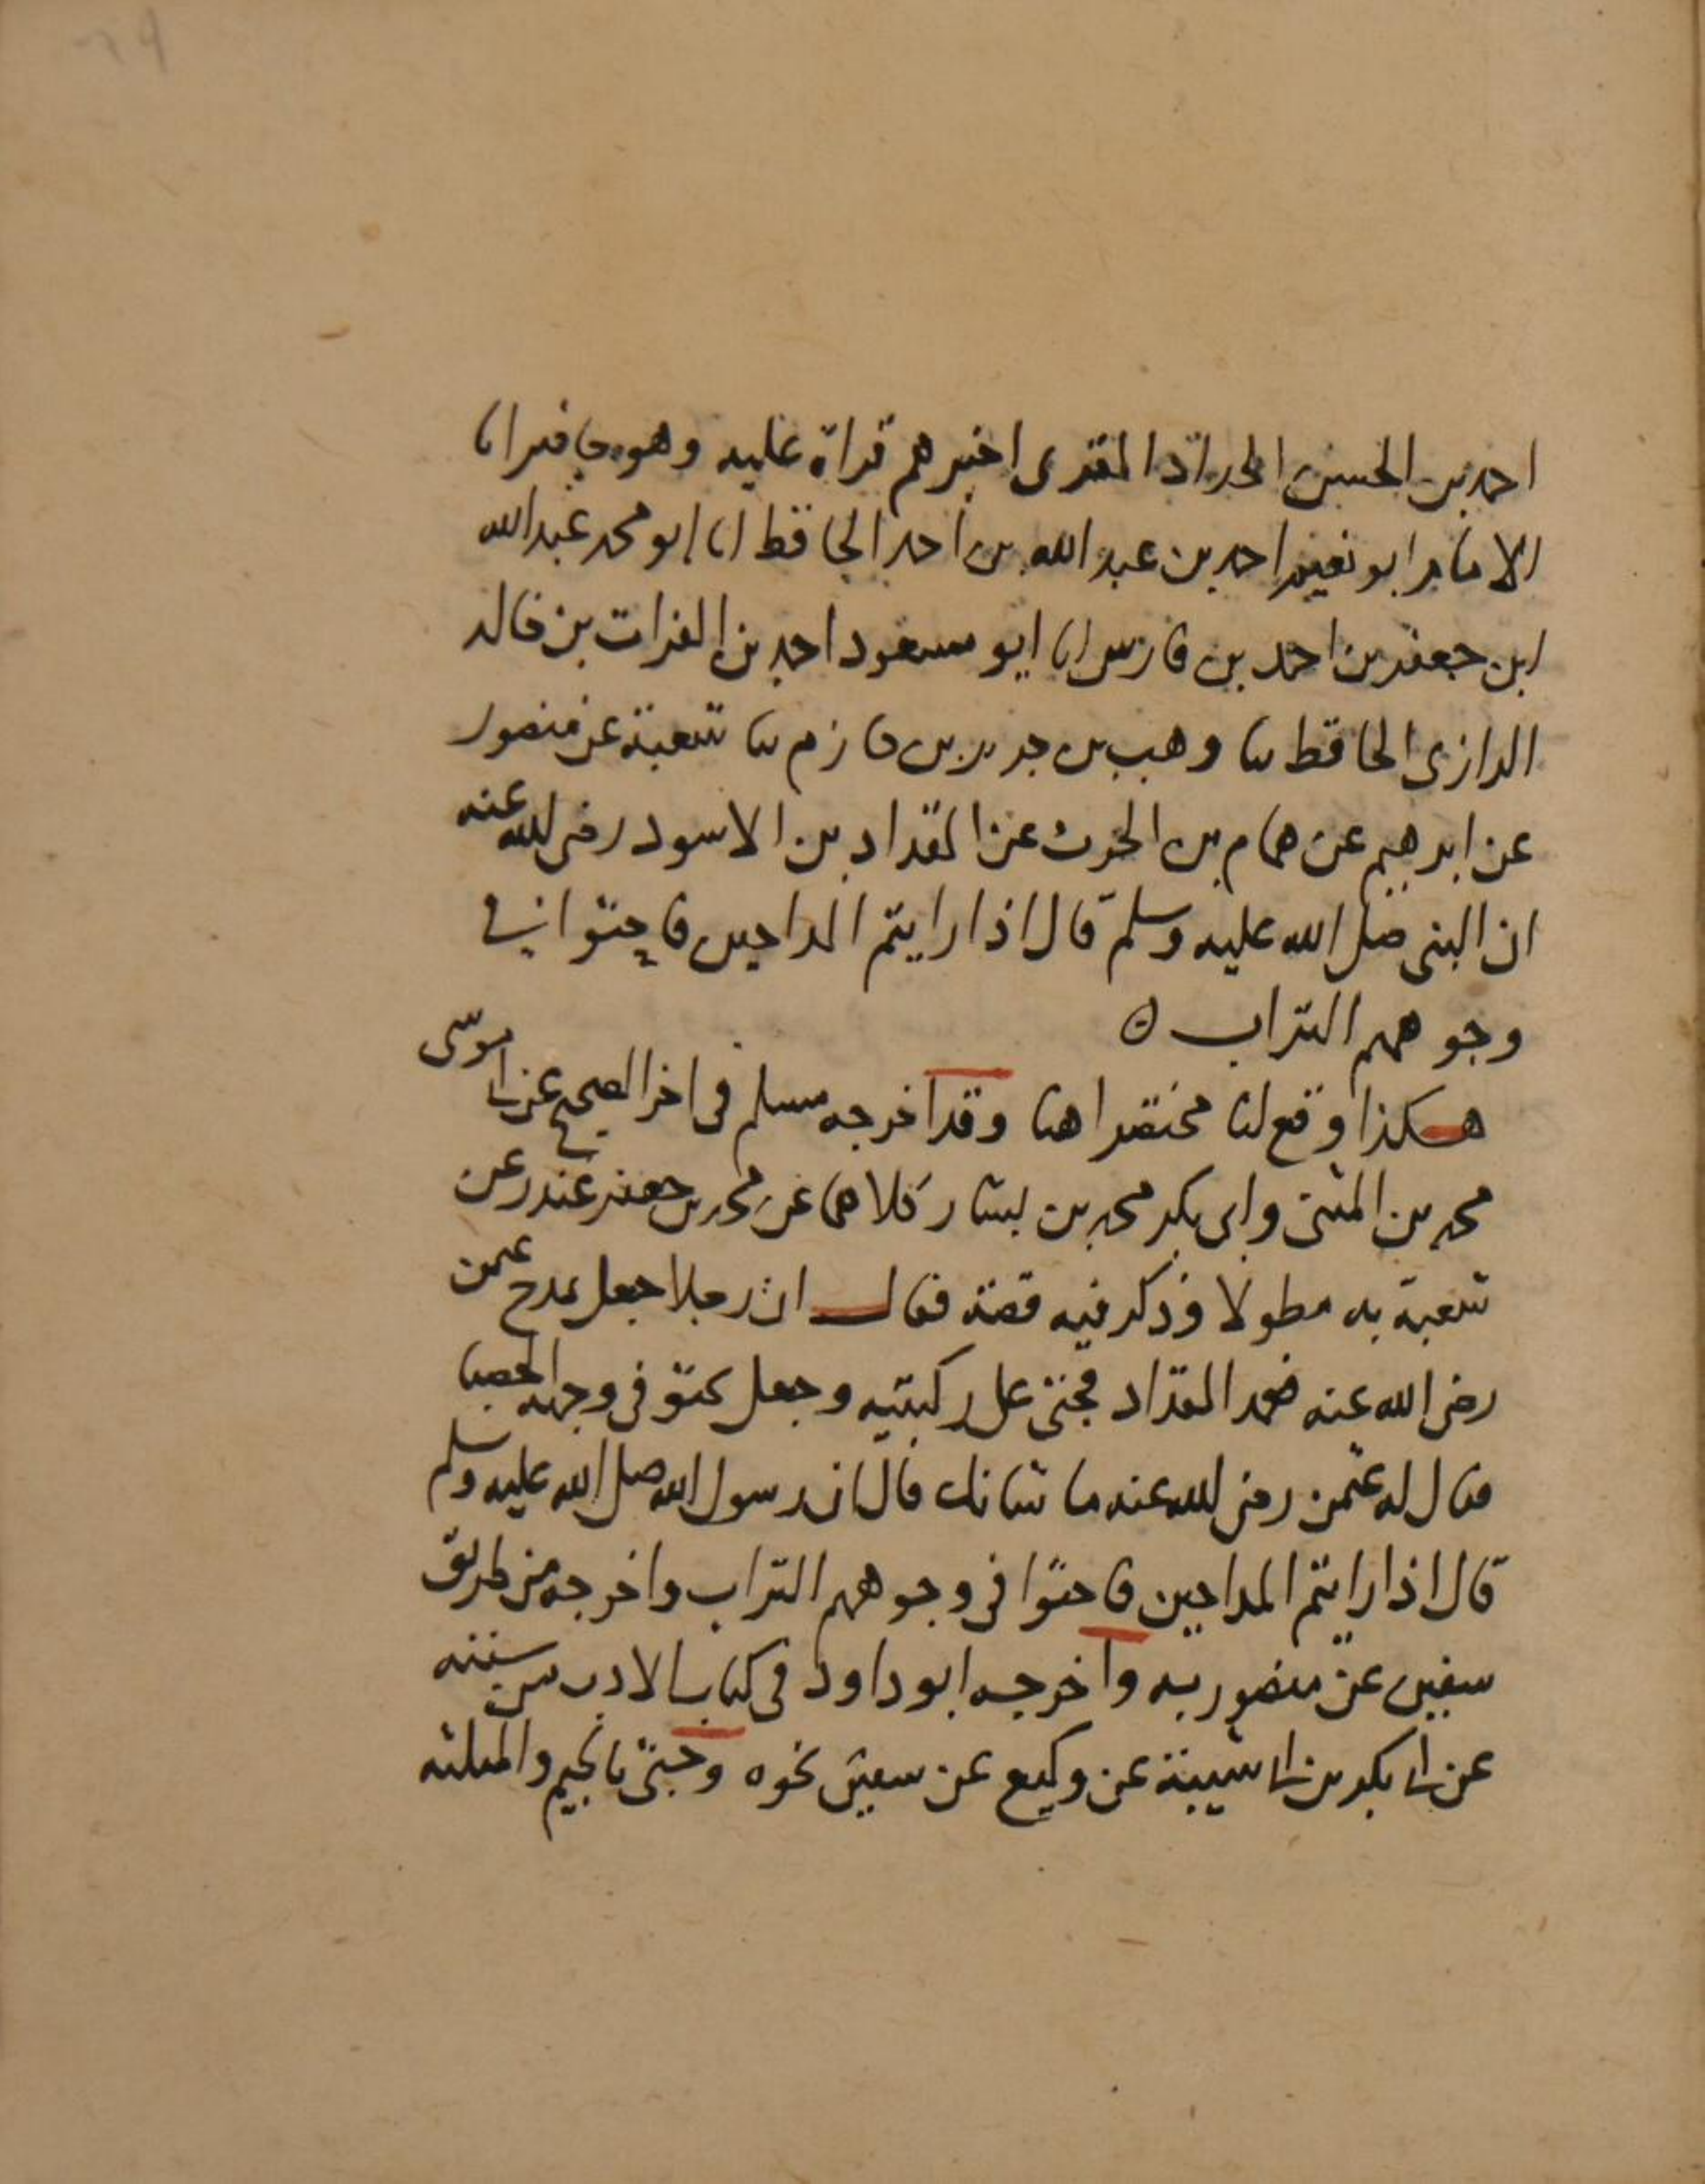 احمد بن الحسن الحداد المقرى اخبرهم قراة عليه وهو حاضر انا
الامام ابو نعيم احمد بن عبد الله بن احمد الحافظ انا ابو محمد عبد الله
ابن جعفر بن احمد بن فارس انا ابو مسعود احمد بن الفرات بن خالد
الرازى الحافظ ثنا وهب بن جرير بن حازم ثنا شعبة عن منصور
عن ابرهيم عن همام بن الحرث عن المقداد بن الاسود رضى الله عنه
ان النبى صلى الله عليه وسلم قال اذا رايتم المداحين فاحثوا فى
وجوههم التراب ه
هكذا وقع لنا مختصرا هنا وقد اخرجه مسلم فى اخر الصحيح عن ابى موسى
محمد بن المثنى وابى بكر محمد بن بشار كلاهما عن محمد بن جعفر غندر عن
شعبة به مطولا وذكر فيه قصة فقال ان رجلا جعل يمدح عثمن
رضى الله عنه فعمد المقداد فجثى على ركبتيه وجعل يحثو فى وجهه الحصبا
فقال له عثمن رضى الله عنه ما شانك قال ان رسول الله صلى الله عليه وسلم
قال اذا رايتم المداحين فاحثوا فى وجوههم التراب واخرجه من طريق
سفين عن منصور به واخرجه ابو داود فى كتاب الادب من سننه
عن ابى بكر بن ابى شيبة عن وكيع عن سفين نحوه وجثى بالجيم والمثلثه